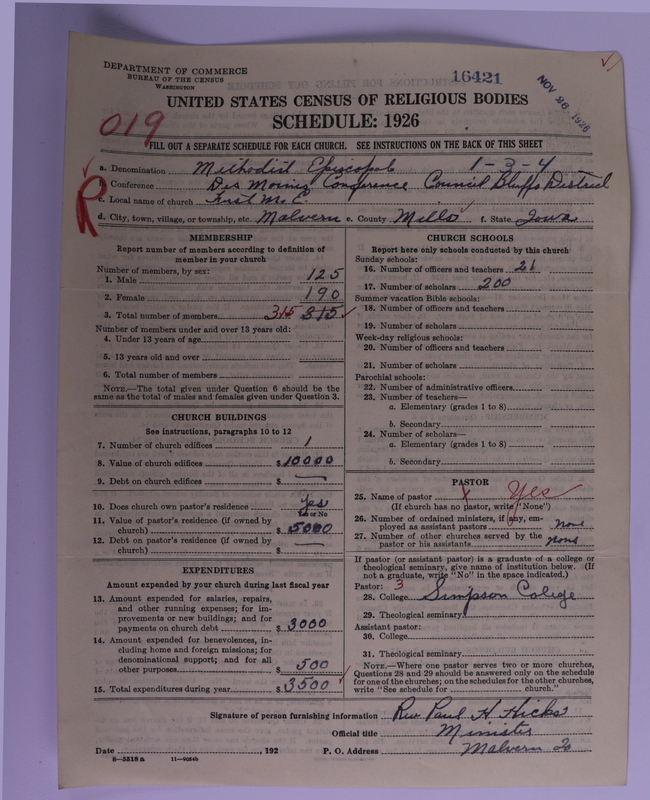 DEPARTMENT OF COMMERCE
BUREAU OF THE CENSUS
WASHINGTON
16421
NOV 26 1926
UNITED STATES CENSUS OF RELIGIOUS BODIES
SCHEDULE: 1926
019
FILL OUT A SEPARATE SCHEDULE FOR EACH CHURCH. SEE INSTRUCTIONS ON THE BACK OF THIS SHEET
R
a. Denomination Methodist Episcopal 1-3-4
b. Conference Des Moines Conference Council Bluffs District
c. Local name of church First M. E.
d. City, town, village, or township, etc. Malvern e. County Mills f. State Iowa
MEMBERSHIP
Report number of members according to definition of
member in your church
Number of members, by sex:
1. Male 125
2. Female 190
3. Total number of members 315 315
Number of members under and over 13 years old:
4. Under 13 years of age
5. 13 years old and over
6. Total number of members
NOTE.—The total given under Question 6 should be
same as the total of males and females given under Question 3.
CHURCH BUILDINGS
See instructions, paragraphs 10 to 12
7. Number of church edifices 1
8. Value of church edifices $10000
9. Debt on church edifices $ —
10. Does church own pastor's residence yes
Yes or No
11. Value of pastor's residence (if owned by
church) $ 5000
12. Debt on pastor's residence (if owned by
church) $ —
EXPENDITURES
Amount expended by your church during last fiscal year
13. Amount expended for salaries, repairs,
and other running expenses; for im-
provements or new buildings; and for
payments on church debt $ 3000
14. Amount expended for benevolences, in-
cluding home and foreign missions; for
denominational support; and for all
other purposes $ 500
15. Total expenditures during year $ 3500
CHURCH SCHOOLS
Report here only schools conducted by this church
Sunday schools:
16. Number of officers and teachers 21
17. Number of scholars 200
Summer vacation Bible schools:
18. Number of officers and teachers
19. Number of scholars
Week-day religious schools:
20. Number of officers and teachers
21. Number of scholars
Parochial schools:
22. Number of administrative officers
23. Number of teachers—
a. Elementary (grades 1 to 8)
b. Secondary
24. Number of scholars—
a. Elementary (grades 1 to 8)
b. Secondary
PASTOR
25. Name of pastor x Yes
(If church has no pastor, write "None")
26. Number of ordained ministers, if any, em-
ployed as assistant pastors none
27. Number of other churches served by the
pastor or his assistants none
If pastor (or assistant pastor) is a graduate of a college or
theological seminary, give name of institution below. (If
not a graduate, write "No" in the space indicated.)
Pastor: 3
28. College Simpson College
29. Theological seminary
Assistant pastor:
30. College
31. Theological seminary
NOTE.—Where one pastor serves two or more churches,
Questions 28 and 29 should be answered only on the schedule
for one of the churches; on the schedules for the other churches,
write "See schedule for church."
Signature of person furnishing information Rev Paul H. Hicks
Official title Minister
Date , 192 P. O. Address Malvern Ia
8—5518 a 11—9034b